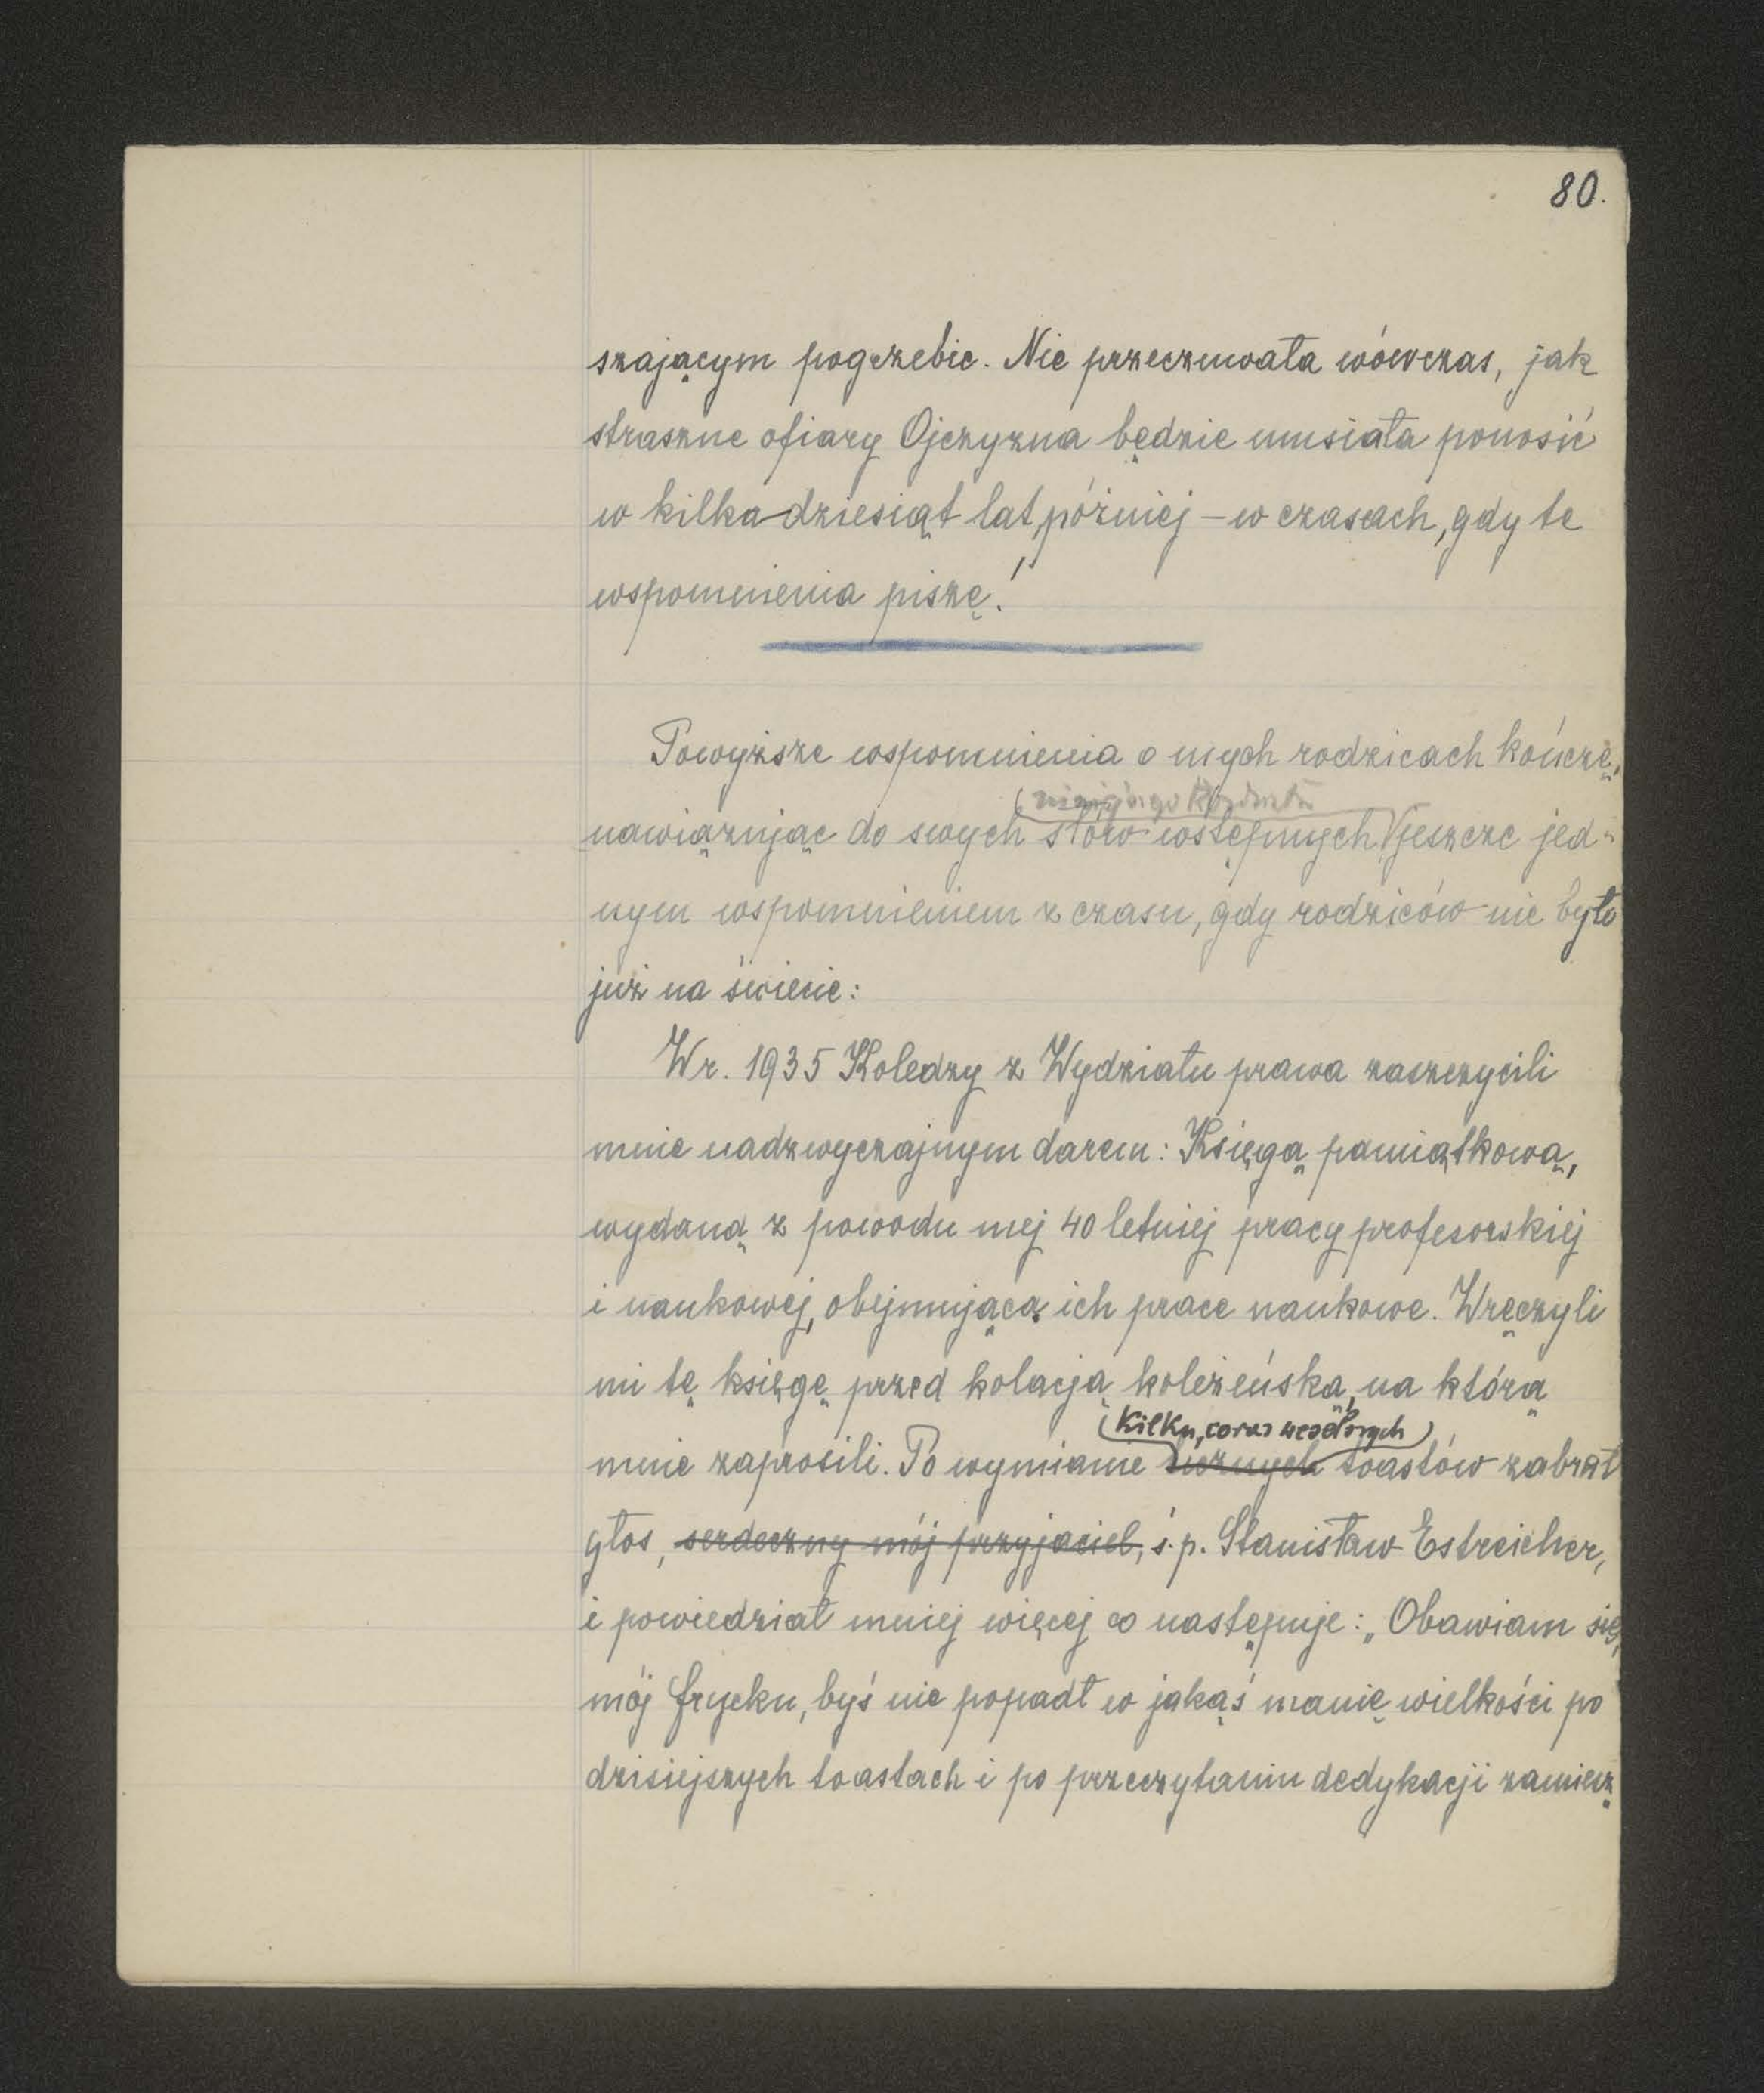 80.
szającym pogrzebie. Nie przeczuwała wówczas, jak
straszne ofiary Ojczyzna będzie musiała ponosić
w kilkadziesiąt lat później – w czasach, gdy te
wspomnienia piszę!
Powyższe wspomnienia o mych rodzicach kończę,
niniejszego
nawiązując do swych słów wstępnych jeszcze jed-
nym wspomnieniem z czasu, gdy rodziców nie było
już na świecie:
W r. 1935 Koledzy z Wydziału prawa zaszczycili
mnie nadzwyczajnym darem: Księgą pamiątkową,
wydaną z powodu mej 40 letniej pracy profesorskiej
i naukowej, obejmującą ich prace naukowe. Wręczyli
mi tę księgę przed kolacją koleżeńską, na którą
kilku, coraz weselszych
mnie zaprosili. Po wymianie licznych toastów zabrał
głos, serdeczny mój przyjaciel, ś.p. Stanisław Estreicher,
i powiedział mniej więcej co następuje: „Obawiam się,
mój frycku, byś nie popadł w jakąś manię wielkości po
dzisiejszych toastach i po przeczytaniu dedykacji zamiesz